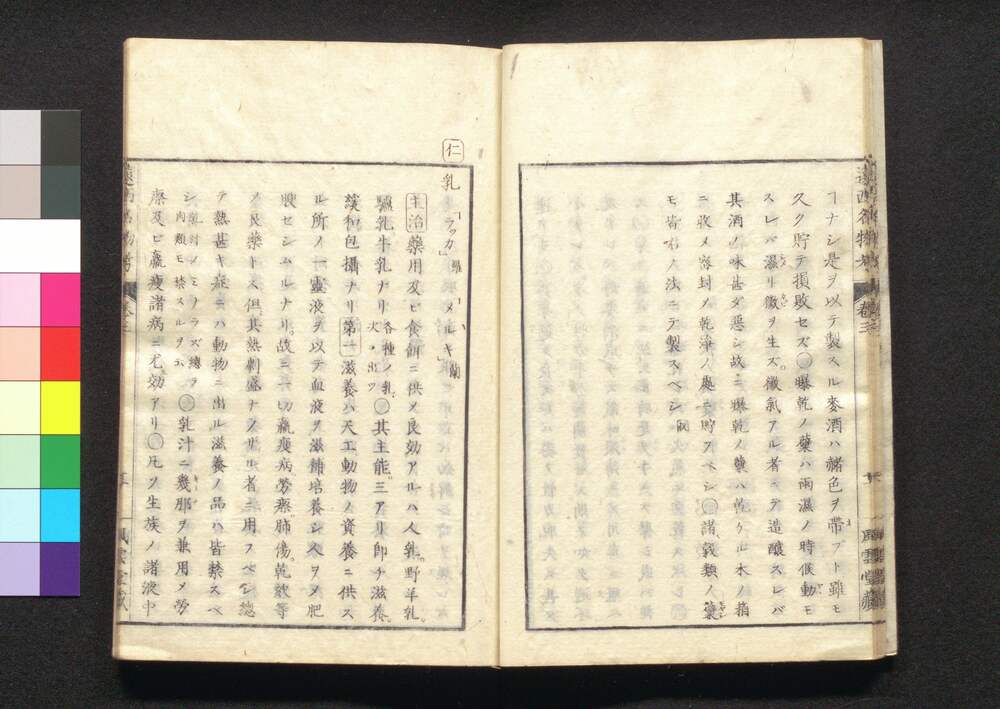 コナシ是ヲ以テ製スル麥酒ハ赭色ヲ帶ブト雖モ
久ク貯テ損敗セズ〇曝乾ノ糵ハ雨濕ノ時候動モ
スレバ濕リ黴ヲ生ズ黴氣アル者ニテ造釀スレバ
其酒ノ味甚ダ惡シ故ニ曝乾ノ糵ハ乾クル木ノ箱
ニ收メ密封メ乾淨ノ處ニ貯フベシ〇諸穀類ノ糵
モ皆右ノ法ニテ製スベシ
仁
乳 「ラッカ」羅 「メルキ」蘭
主治 藥用及ビ食餌ニ供メ良効アルハ人乳。野羊乳。
驢乳牛乳ナリ 各種ノ乳ハ次ニ出ツ 〇其主能三アリ即チ滋養。
漢和包攝ナリ 第一 滋養ハ天工動物ノ資養ニ供ス
ル所ノ一靈液ヲ以テ血液ヲ滋補培養シ人ヲメ肥
腴セシムルナリ。故ニ一切羸瘦病勞瘵肺傷。乾欬等
メ良藥トス但其熱剩盛ナメル者ニ用スベシ總
テ熱甚キ症ニハ動物ニ出ル滋養ノ品ハ皆禁スベ
シ 乳汁ノミナラズ總テ肉類モ禁スルヲ云 〇乳汁ニ幾那ヲ兼用メ勞
瘵及ビ羸瘦諸病ニ尤効アリ〇凡ソ生族ノ諸液中